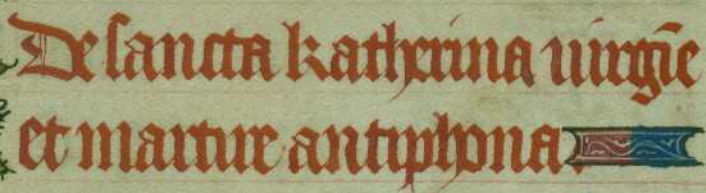 De sancta katherina uirgīe
et martire antiphona.